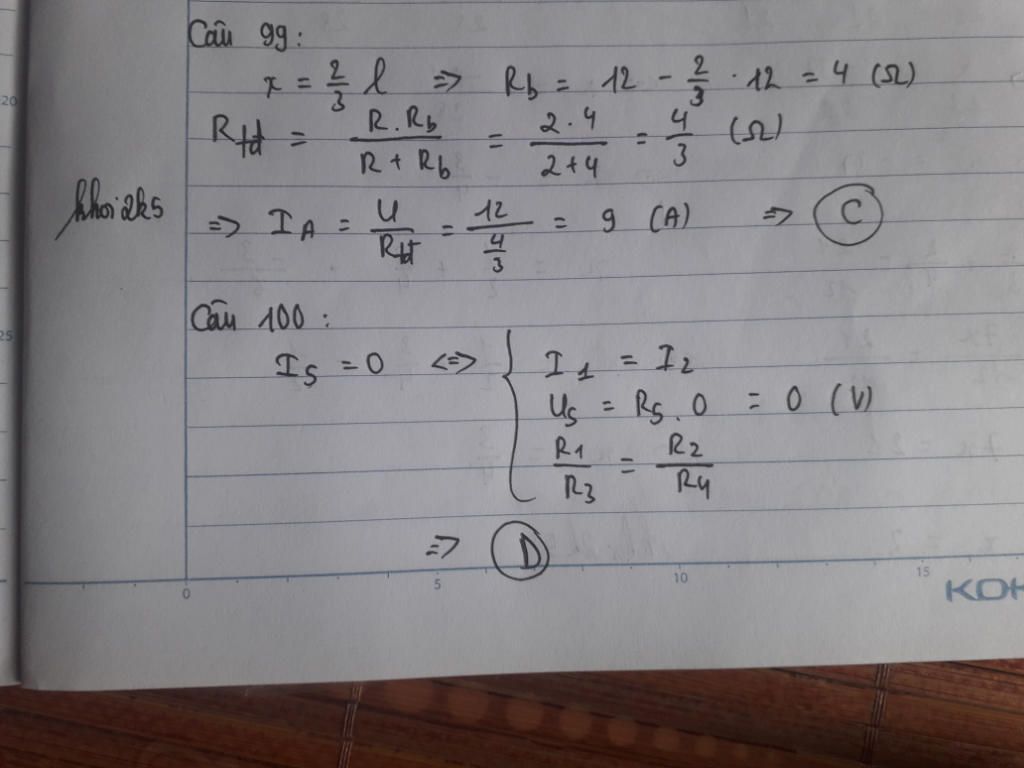 Câu 99:
x = 2/3 l => Rb = 12 - 2/3 . 12 = 4 (Ω)
Rtd = R.Rb / R + Rb = 2.4 / 2+4 = 4/3 (Ω)
khoi2k5
=> IA = U / Rtd = 12 / 4/3 = 9 (A) => C
Câu 100:
I5 = 0 <=> { I1 = I2
U5 = R5 . 0 = 0 (V)
R1/R3 = R2/R4
=> D
0 5 10 15
20
25
KOK